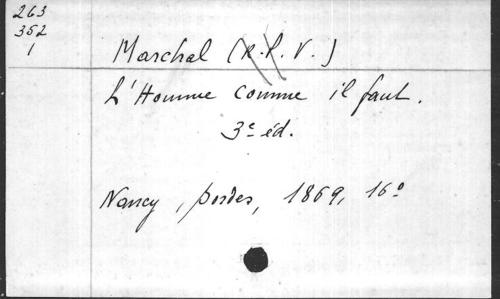 263
352
1
Marchal (R. P. V.)
L'Homme comme il faut.
3e éd.
Nancy, Bordes, 1869, 16°